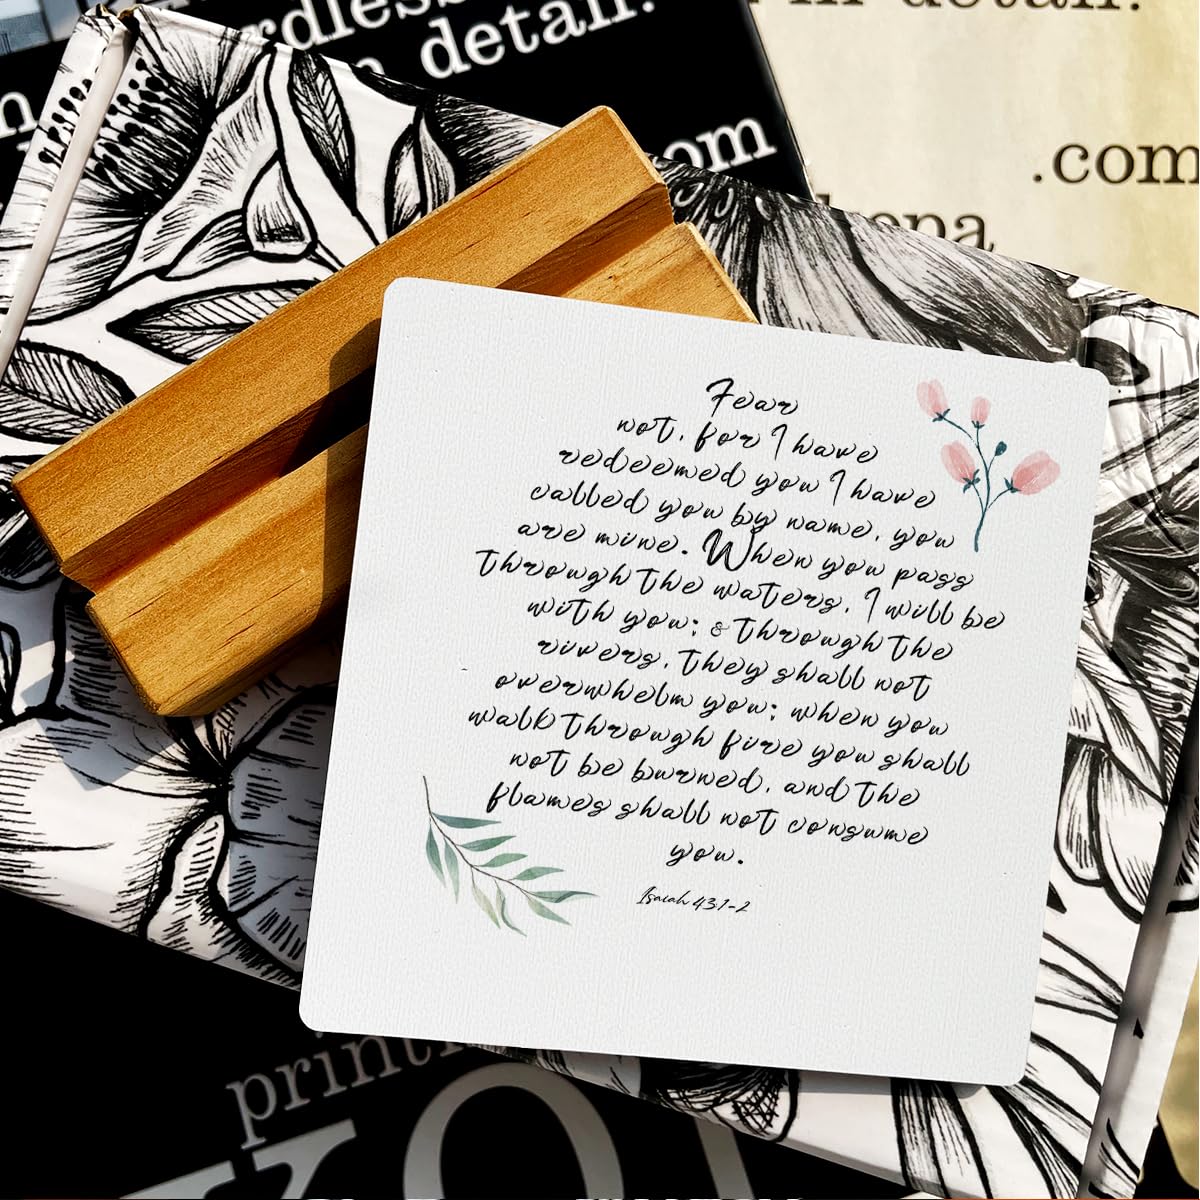 rdless
n detail.
in detail.
n
com
.com
kopa
Fear
not, for I have
redeemed you I have
called you by name, you
are mine. When you pass
through the waters, I will be
with you; & through the
rivers, they shall not
overwhelm you; when you
walk through fire you shall
not be burned, and the
flames shall not consume
you.
Isaiah 43:1-2